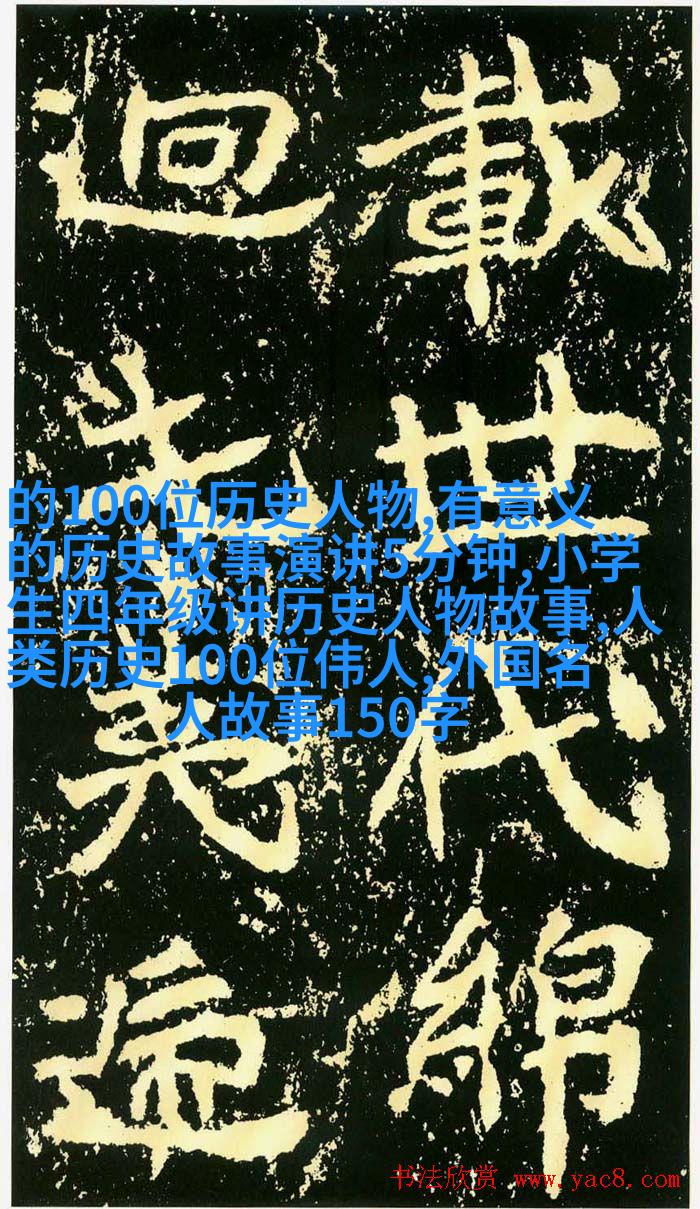 載世代綿
迴
的100位历史人物,有意义
的历史故事演讲5分钟,小学
生四年级讲历史人物故事,人
类历史100位伟人,外国名
人故事150字
书法欣赏 www.yac8.com